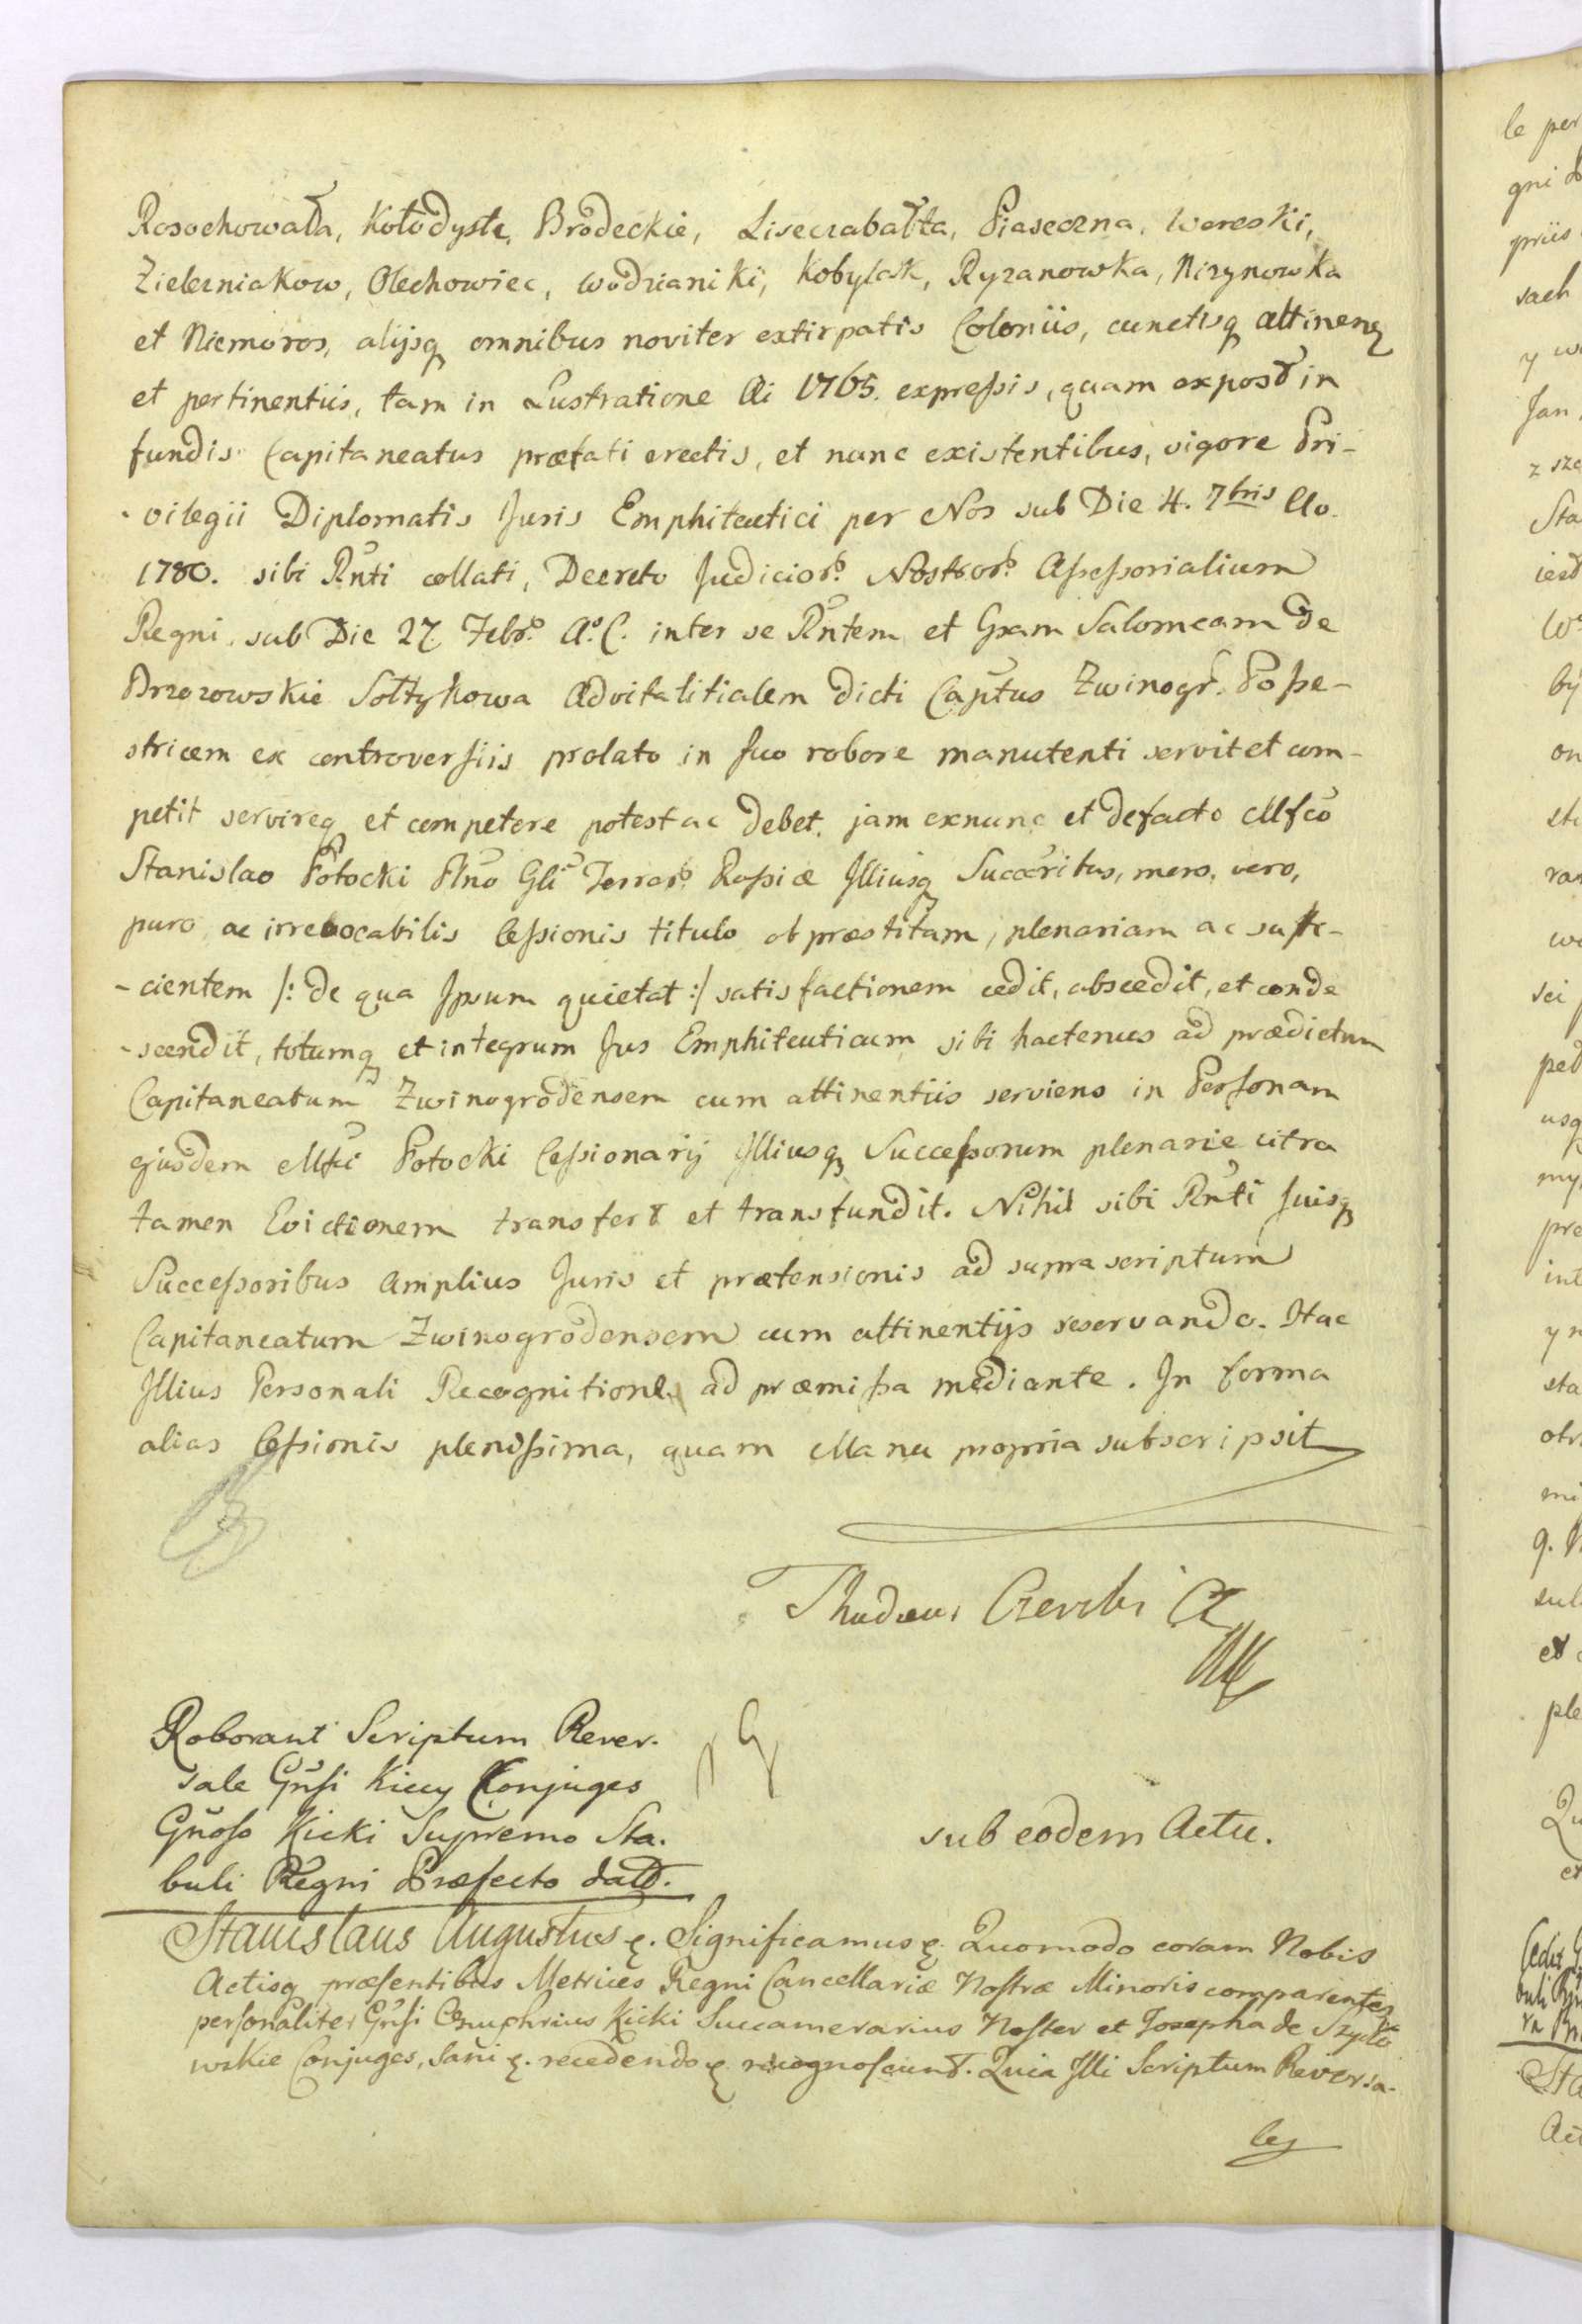 Rosochowatka, Kołodyste, Brodeckie, Lisecrabałta, Piaseczna, Wereski,
Zielezniakow, Olechowiec, Wodzianiki, Kobylask, Ryzanowka, Nizynowka
et Niemoros, alijsq omnibus noviter extirpatis Coloniis, cunctisq attinenꝫ
et pertinentiis, tam in Lustratione Ai 1765. expreßis, quam expost in
fundis Capitaneatus præfati erectis, et nunc existentibus, vigore Pri-
-vilegii Diplomatis Juris Emphiteutici per Nos sub Die 4. 7bris Ao.
1780. sibi Rñti collati, Decreto Judicior. Nostror. Aßeßorialium
Regni sub Die 27. Febr. Ao. C. inter se Rñtem et Gsam Salomeam de
Brzozowskie Sołtykowa Advitalitialem dicti Captus Zwinogr. Poße-
stricem ex controversiis prolato in suo robore manutenti servit et com-
petit servireq et competere potest ac debet, jam exnunc et defacto Mfco
Stanislao Potocki Pño Gli Terrar. Rußiæ Illiusq Succoribus, mero, vero,
puro ac irrevocabilis Ceßionis titulo ob præstitam, plenariam ac suffi-
-cientem /: de qua Ipsum quietat :/ satisfactionem cedit, abscedit, et conde
-scendit, totumq et integrum Jus Emphiteuticum sibi hactenus ad prædictum
Capitaneatum Zwinogrodensem cum attinentiis serviens in Personam
ejusdem Mfci Potocki Ceßionarij Illiusq Succeßorum plenarie citra
tamen Evictionem transfert et transfundit. Nihil sibi Rñti suisq
Succeßoribus amplius Juris et prætensionis ad suprascriptum
Capitaneatum Zwinogrodensem cum attinentijs reservando. Hac
Illius Personali Recognitione ad præmißa mediante. In forma
alias Ceßionis plenißima, quam Manu propria subscripsit
Roborant Scriptum Rever-
sale Gñsi Kiccy Conjuges
Gñoso Kicki Supremo Sta-
buli Regni Præfecto dat.
sub eodem Actu.
Stanislaus Augustus ꝛ. Significamus ꝛ. Quomodo coram Nobis
Actisq præsentibus Metrices Regni Cancellariæ Nostræ Minoris comparentes
personaliter Gñsi Onuphrius Kicki Succamerarius Noster et Josepha de Szydło
wskie Conjuges, Sani ꝛ. recedendo ꝛ recognoscunt. Quia Illi Scriptum Reversa-
le